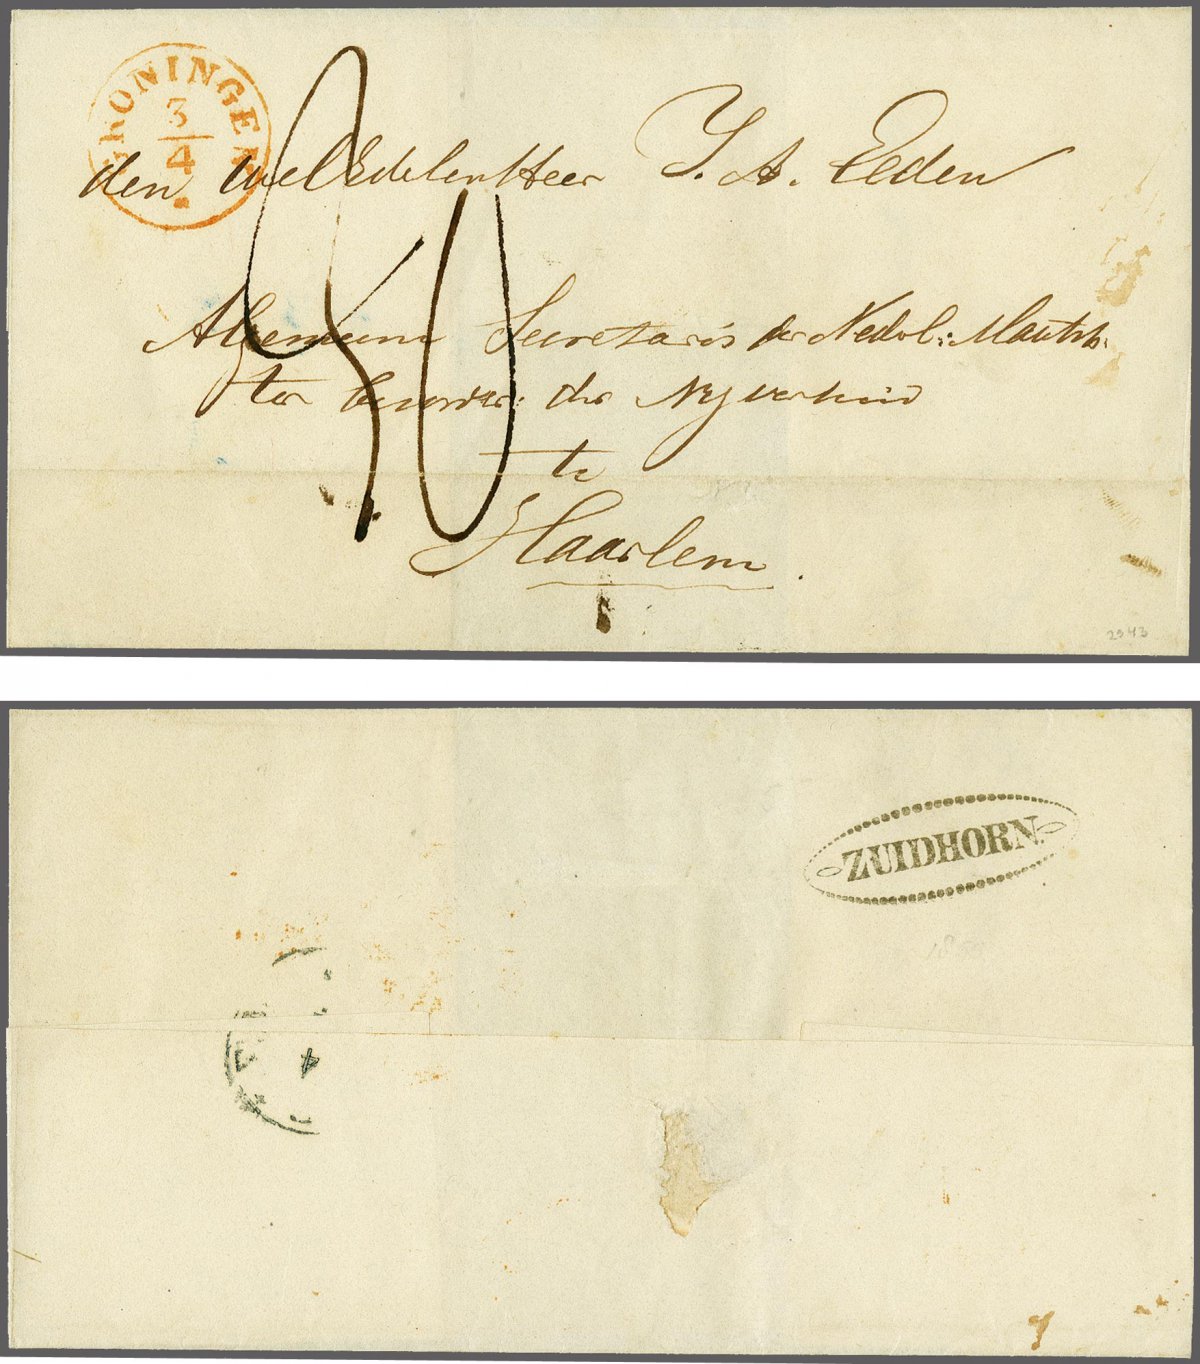 GRONINGEN
3
4
den WelEdelen Heer J. A. Eeden
Algemeen Secretaris der Nederl: Maatsch:
ter bevorder: der Nyverheid
te
Haarlem.
2943
ZUIDHORN
4